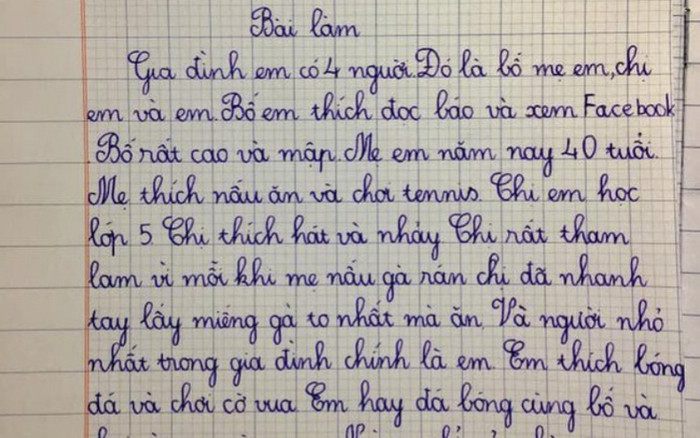 Bài làm
Gia đình em có 4 người. Đó là bố mẹ em, chị
em và em. Bố em thích đọc báo và xem Facebook
. Bố rất cao và mập. Mẹ em năm nay 40 tuổi.
Mẹ thích nấu ăn và chơi tennis. Chị em học
lớp 5. Chị thích hát và nhảy. Chị rất tham
lam vì mỗi khi mẹ nấu gà rán chị đã nhanh
tay lấy miếng gà to nhất mà ăn. Và người nhỏ
nhất trong gia đình chính là em. Em thích bóng
đá và chơi cờ vua. Em hay đá bóng cùng bố và